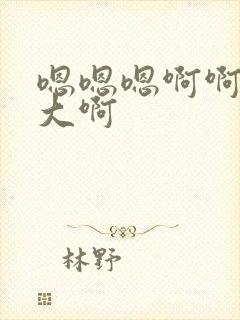 嗯嗯嗯啊啊
大啊
林野